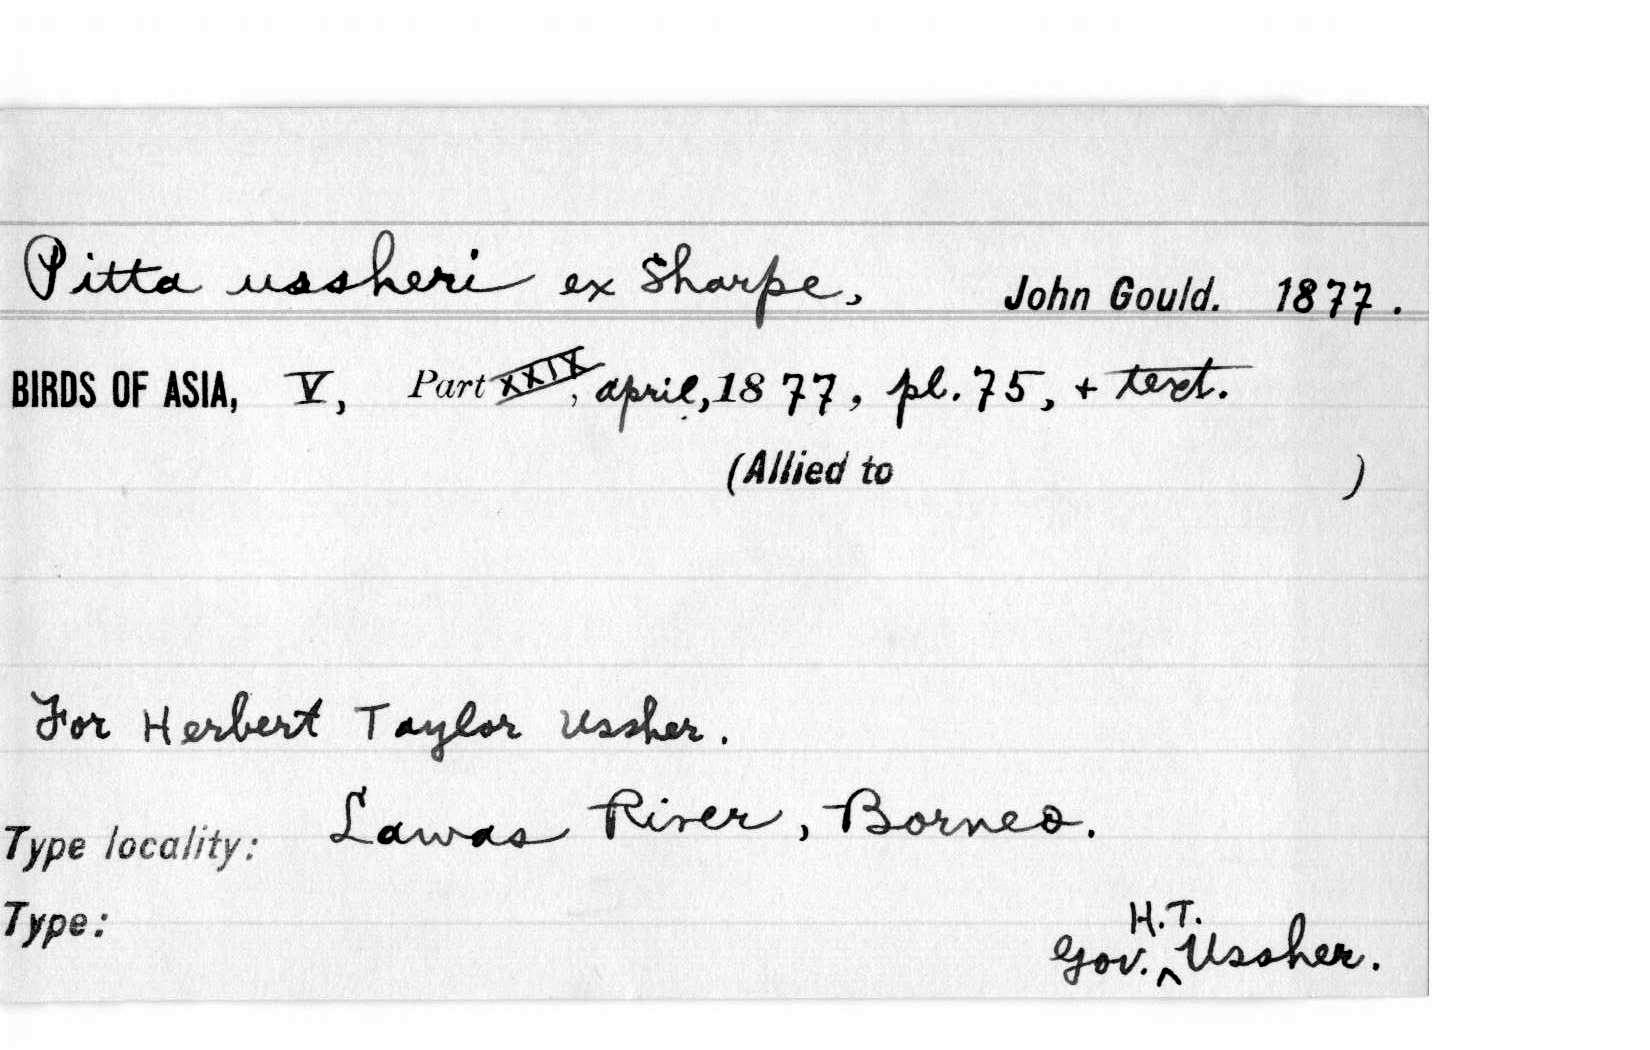 Pitta ussheri ex Sharpe, John Gould. 1877.
BIRDS OF ASIA, V, Part XXIX, april, 1877, pl. 75, + text.
(Allied to )
For Herbert Taylor Ussher.
Type locality: Lawas River, Borneo.
Type:
Gov. H.T. Ussher.